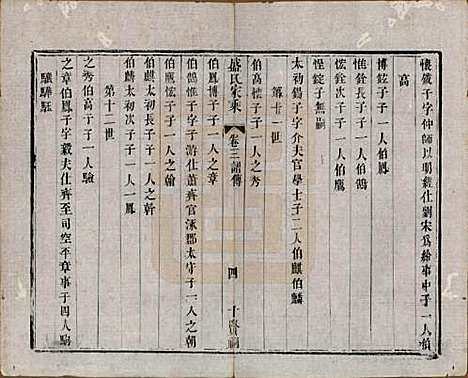 懷鐵子字仲師以明經仕劉宋爲給事中子一人伯
高
博鉉子子一人伯鳳
惟銓子子一人伯鶴
惔銓次子子一人伯鷹
惺錠子無嗣
太初錫子字介夫官學士子二人伯麒伯麟
第十一世
伯高懷子子一人之秀
盛氏家乘
卷三諸傳
四
伯鳳博子子一人之章
伯鶴惟子字仕蕭齊官涿郡太守子一人之朝
伯鷹惔子子一人之翰
伯麒太初長子子一人之幹
伯麟太初次子子一人鳳
第十二世
之秀伯高子子一人驗
之章伯鳳子字毅夫仕齊至司空平章事子四人騊
驤驊駐